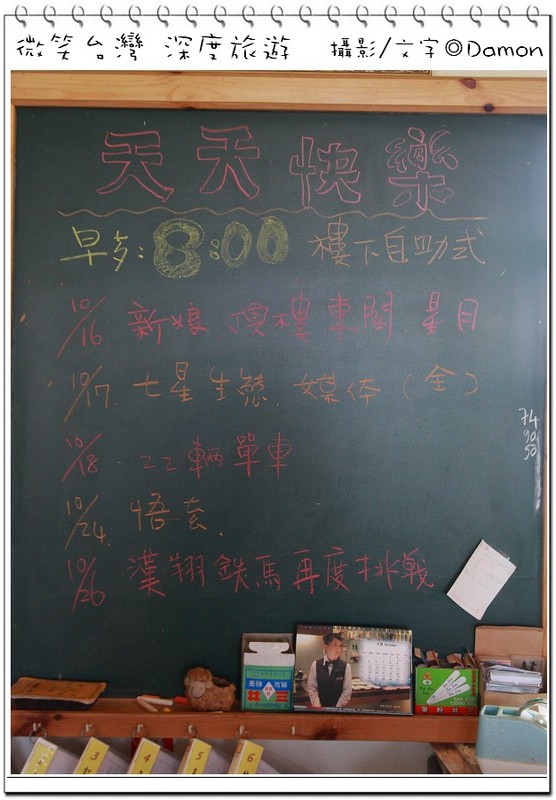 微笑台灣 深度旅遊 攝影/文字◎Damon
天天快樂
早多: 8:00 樓下自助式
10/16 新娘 頂樓東閣 星月
10/17 七星生態. 媒体(全)
10/18 22輛單車
10/24. 悟玄.
10/26 漢翔鉄馬再度挑戦
74
90
50
3
4
5
6